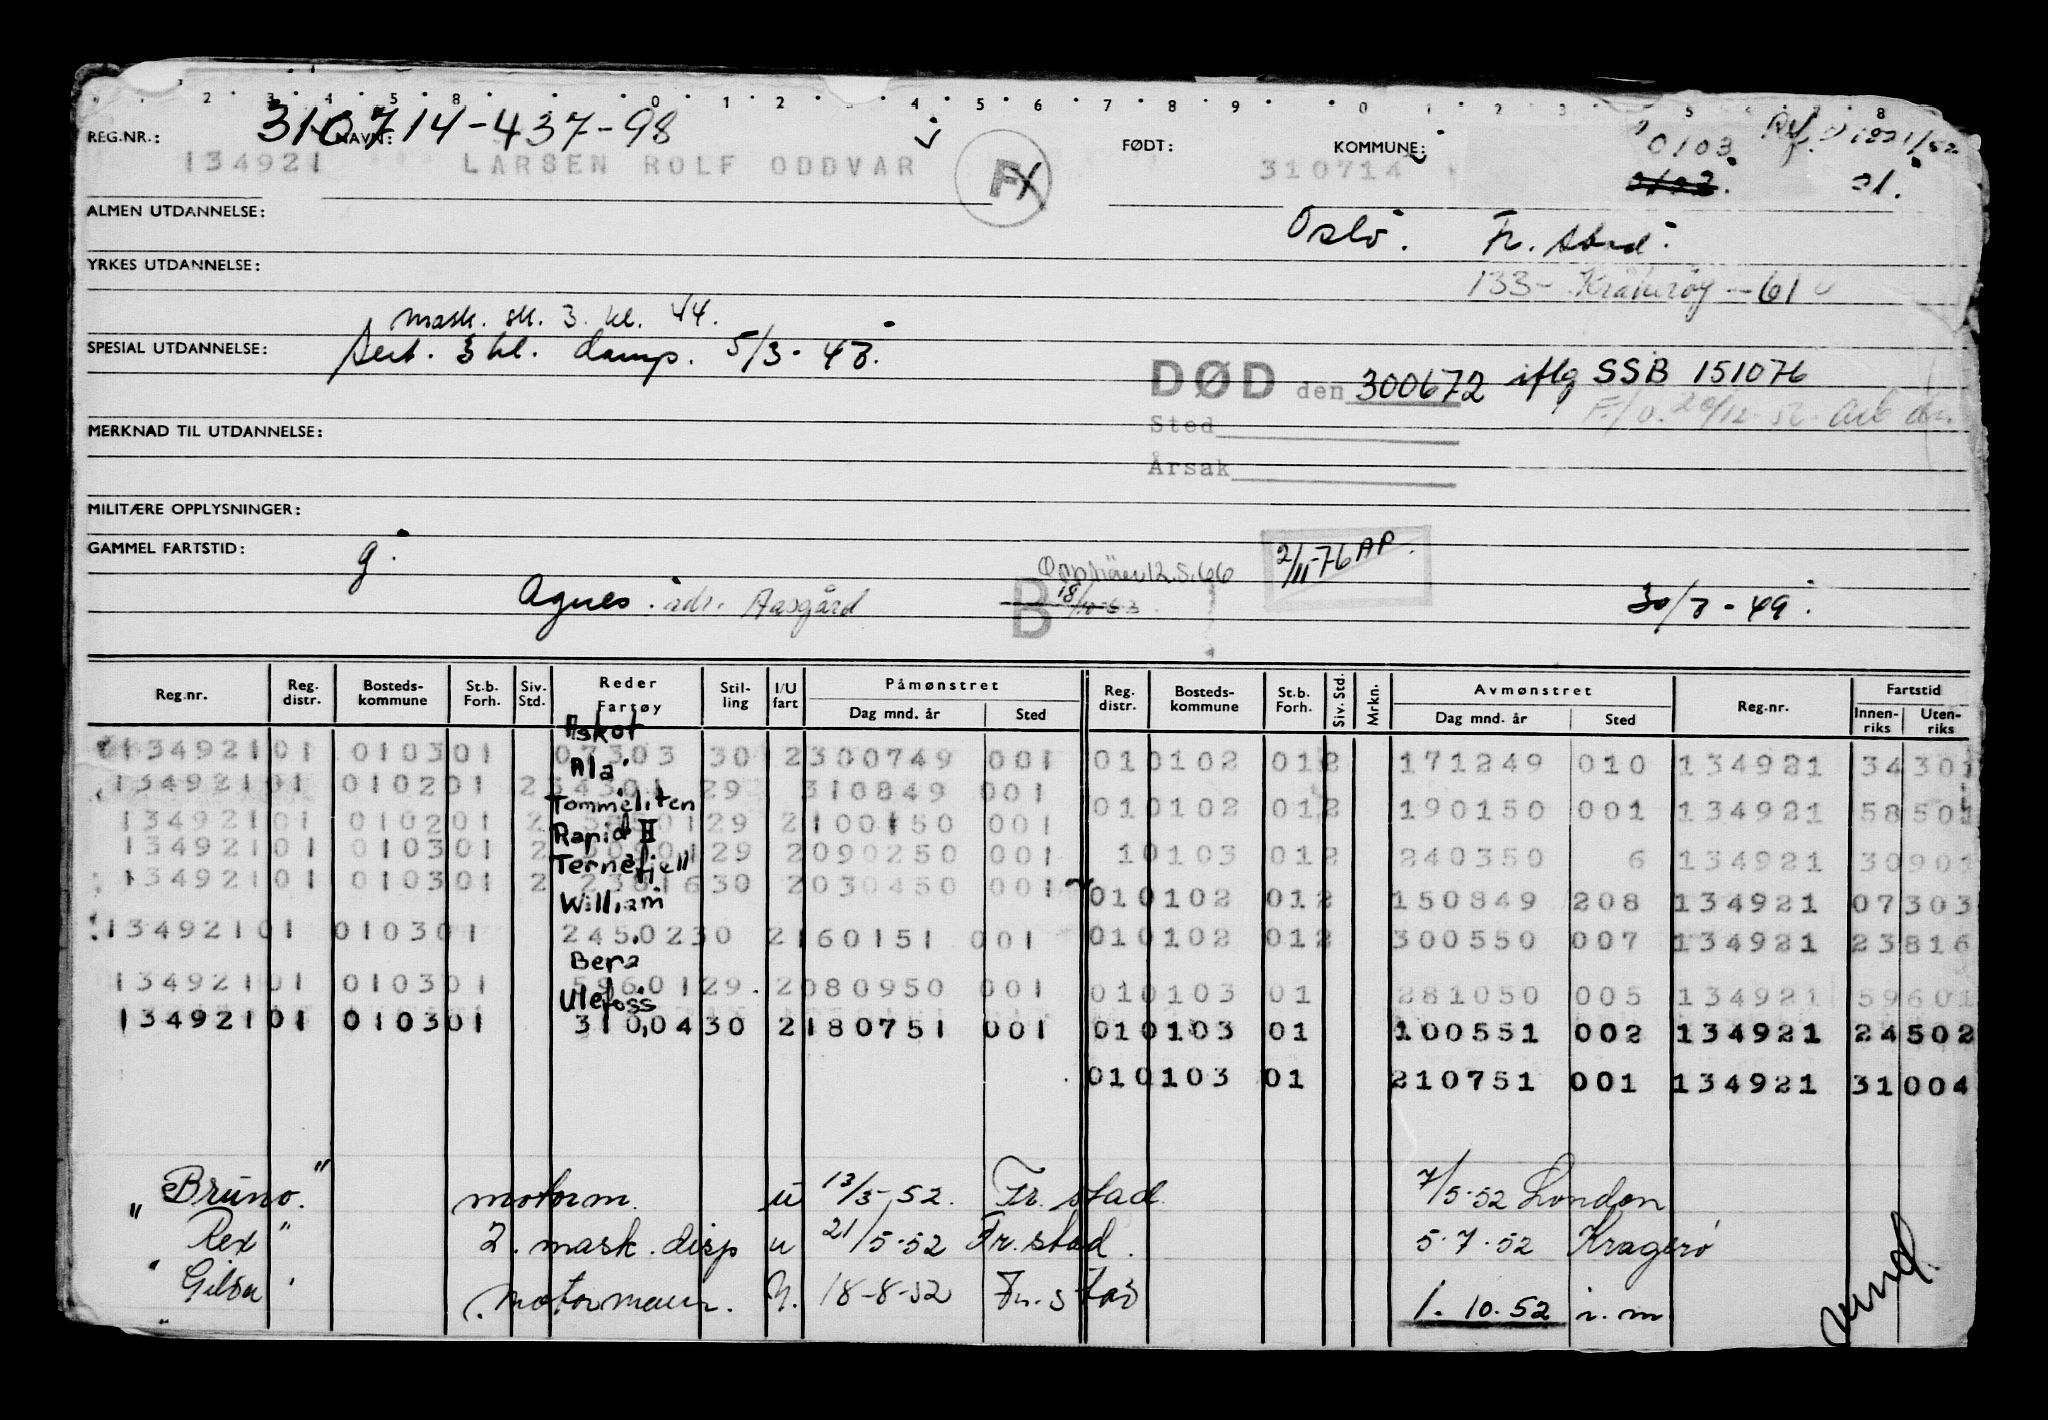 310714-437-98
REG.NR.: NAVN: FØDT: KOMMUNE: 0103
134921 LARSEN ROLF ODDVAR 310714 01.
ALMEN UTDANNELSE: Oslo. Fr. stad.
YRKES UTDANNELSE: 133- Kråkerøy -61
mask. sk. 3. kl. 44.
SPESIAL UTDANNELSE: Sert. 3 kl. damp. 5/3-43.
DØD den 300672 iflg SSB 151076
Sted
MERKNAD TIL UTDANNELSE:
Årsak
MILITÆRE OPPLYSNINGER:
GAMMEL FARTSTID: g. 2/11-76 AP.
Agnes. adr. Aasgård B 30/7-49.
Reg.nr. Reg. distr. Bosteds- kommune St.b. Forh. Siv. Std. Reder Fartøy Stil- ling I/U fart Påmønstret Dag mnd. år Sted Reg. distr. Bosteds- kommune St.b. Forh. Siv. Std. Mrkn. Avmønstret Dag mnd. år Sted Reg.nr. Fartstid Innen- riks Uten- riks
Askot
134921 01 0103 01 07303 30 2 300749 001 01 0102 01 2 171249 010 134921 34301
Ala
134921 01 0102 01 2 34301 29 310849 001
Tommeliten
01 0102 01 2 190150 001 134921 58501
134921 01 0102 01 2 29 2 100150 001
Rapid II
134921 01 0103 01 2 29 2 090250 001 1 0103 01 2 240350 6 134921 30901
Ternefjell
134921 01 0103 01 2 23816 30 2 030450 001
William
01 0102 01 2 150849 208 134921 07303
134921 01 0103 01 24502 30 2 160151 001 01 0102 01 2 300550 007 134921 23816
Bera
134921 01 0103 01 59601 29 2 080950 001 01 0103 01 281050 005 134921 59601
Ulefoss
134921 01 0103 01 31004 30 2 180751 001 01 0103 01 100551 002 134921 24502
01 0103 01 210751 001 134921 31004
"Bruno." motorm. u 13/3-52. Fr. stad 7/5-52 London
Rex" 2. mask. disp u 21/5-52 Fr. stad. 5.7.52 Kragerø
" motormann. U. 18-8-52 Fr. stad 1.10.52 i.m